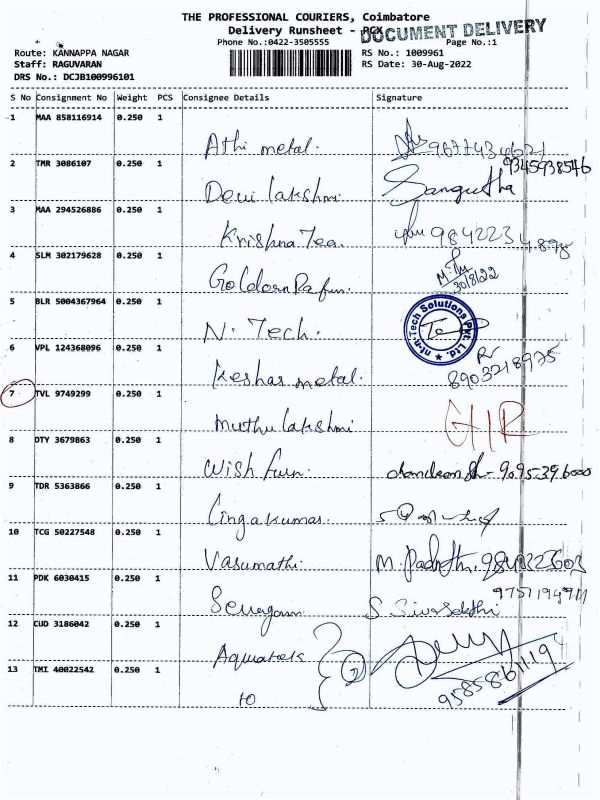 THE PROFESSIONAL COURIERS, Coimbatore
Delivery Runsheet - PCX
DOCUMENT DELIVERY
Phone No.:0422-3505555 Page No.:1
Route: KANNAPPA NAGAR RS No.: 1009961
Staff: RAGUVARAN RS Date: 30-Aug-2022
DRS No.: DCJB100996101
S No Consignment No Weight PCS Consignee Details Signature
1 MAA 858116914 0.250 1
Athi metal.
2 TMR 3086107 0.250 1 9345938546
Devi lakshmi Sangeetha
3 MAA 294526886 0.250 1
Krishna Tea.
4 SLM 302179628 0.250 1
30/8/22
5 BLR 5004367964 0.250 1
N. Tech. nt-n-Tech Solutions Pvt. Ltd.
6 VPL 124368096 0.250 1
Keshar metal. 8903218975
7 TVL 9749299 0.250 1
muthu lakshmi
8 DTY 3679863 0.250 1
Wish furn.
9 TDR 5363866 0.250 1
Lingakumar.
10 TCG 50227548 0.250 1
Vasumathi.
11 PDK 6030415 0.250 1
S. Sivasakthi
12 CUD 3186042 0.250 1
Aquatek
13 TMI 40022542 0.250 1
to 9585861119